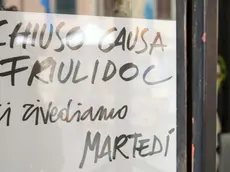 CHIUSO CAUSA
FRIULIDOC
ci rivediamo
MARTEDÍ